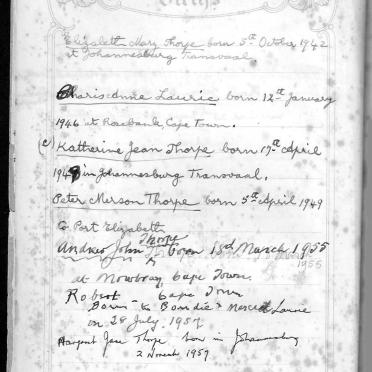 Births
Elizabeth Mary Thorpe born 5th October 1942
at Johannesburg Transvaal.
Charisanne Laurie born 12th January
1946 at Rosebank, Cape Town.
(e) Katherine Jean Thorpe born 17th April
1948 in Johannesburg Transvaal.
Peter Merson Thorpe born 5th April 1949
Port Elizabeth
Andrew John Thorpe born 18th March 1955
1955
at Mowbray Cape Town
Robert - Cape Town
Born to Bondie & Laurie
on 28 July. 1957
Margaret Jane Thorpe born in Johannesburg
2 November 1957